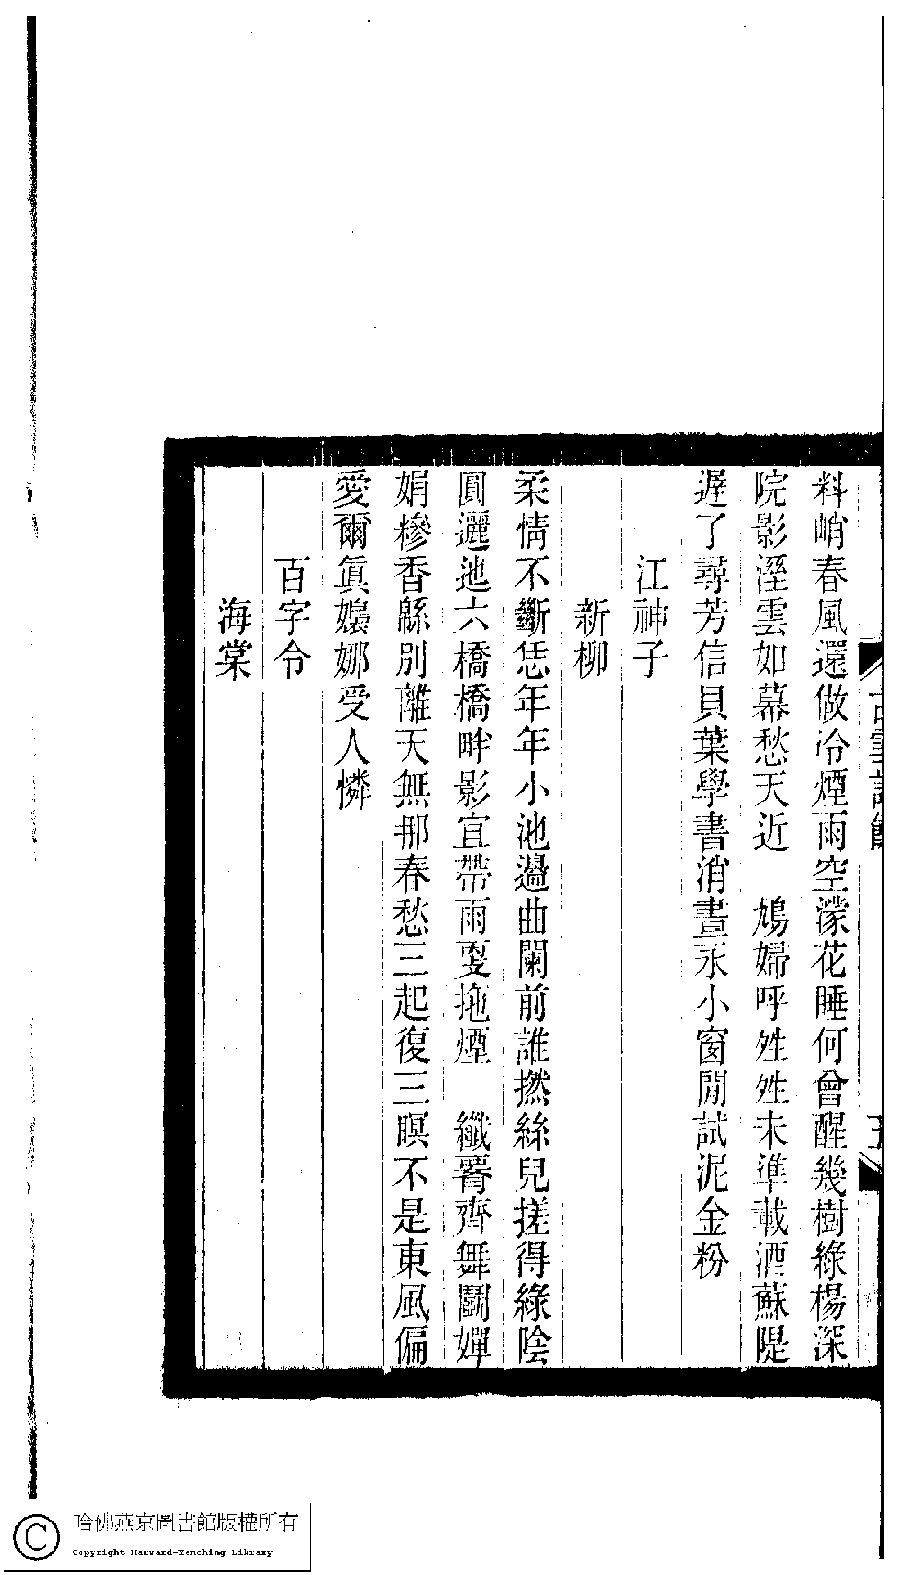 料峭春風還做冷煙雨空濛花睡何曾醒幾樹綠楊深
院影溼雲如幕愁天近　鳩婦呼姓姓未準載酒蘇隄
遲了尋芳信貝葉學書消晝永小窗閒試泥金粉
江神子
新柳
柔情不斷恁年年小池邊曲闌前誰撚絲兒搓得綠陰
圓邐迆六橋橋畔影宜帶雨更拖煙　纖署齊舞鬭嬋
娟糝香緜別離天無那春愁三起復三瞑不是東風偏
愛爾眞嬝娜受人憐
百字令
海棠
哈佛燕京圖書館版權所有
Copyright Harvard-Yenching Library